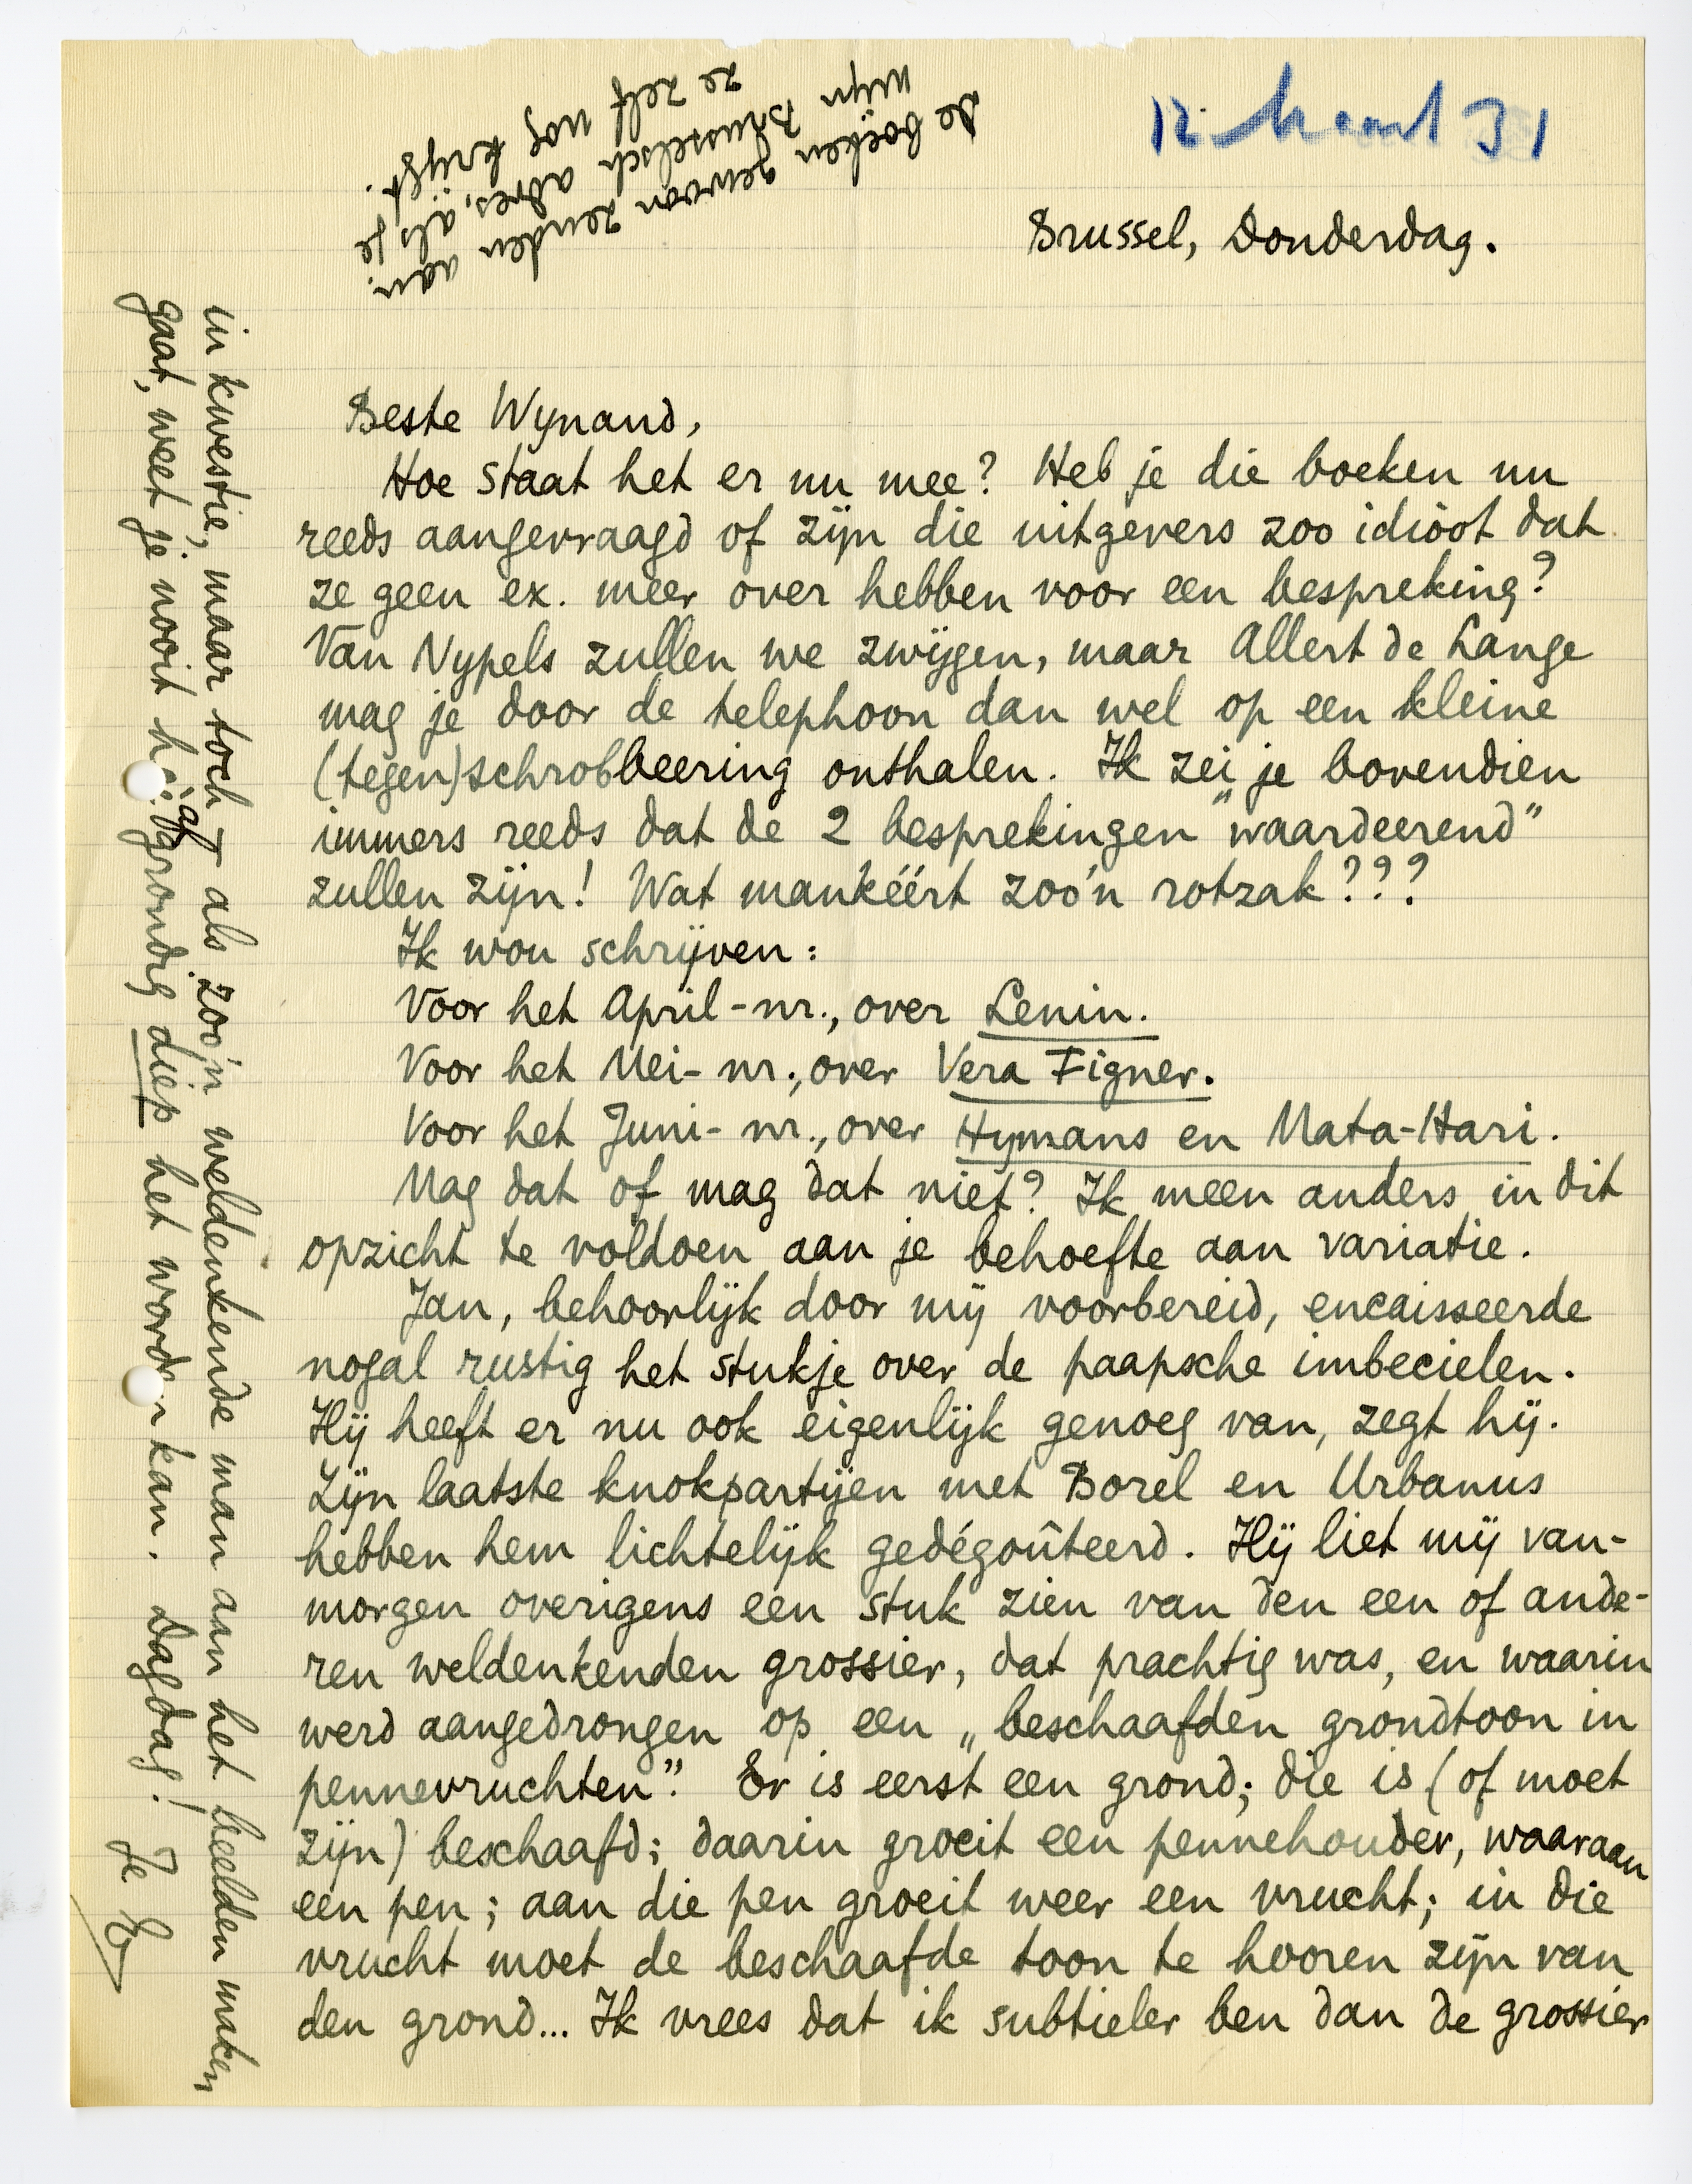 12 Maart 31
Brussel, Donderdag.
Beste Wynand,
Hoe staat het er nu mee? Heb je die boeken nu
reeds aangevraagd of zijn die uitgevers zoo idioot dat
ze geen ex. meer over hebben voor een bespreking?
Van Nypels zullen we zwijgen, maar Allert de Lange
mag je door de telephoon dan wel op een kleine
(tegen)schrobbeering onthalen. Ik zei je bovendien
immers reeds dat de 2 besprekingen „waardeerend”
zullen zijn! Wat mankéért zoo'n rotzak???
Ik wou schrijven:
Voor het April-nr., over Lenin.
Voor het Mei-nr., over Vera Figner.
Voor het Juni-nr., over Hymans en Mata-Hari.
Mag dat of mag dat niet? Ik meen anders in dit
opzicht te voldoen aan je behoefte aan variatie.
Jan, behoorlijk door mij voorbereid, encaisseerde
nogal rustig het stukje over de paapsche imbecielen.
Hij heeft er nu ook eigenlijk genoeg van, zegt hij.
Zijn laatste knokpartijen met Borel en Urbanus
hebben hem lichtelijk gedégoûteerd. Hij liet mij van-
morgen overigens een stuk zien van den een of ande-
ren weldenkenden grossier, dat prachtig was, en waarin
werd aangedrongen op een „beschaafden grondtoon in
pennevruchten”. Er is eerst een grond; die is (of moet
zijn) beschaafd; daarin groeit een pennehouder, waaraan
een pen; aan die pen groeit weer een vrucht; in die
vrucht moet de beschaafde toon te hooren zijn van
den grond... Ik vrees dat ik subtieler ben dan de grossier
in kwestie, maar toch – als zoo'n weldenkende man aan het beelden maken
gaat, weet je nooit hoe àfgrondig diep het worden kan. Dagdag! Je E
De boeken gewoon zenden aan:
mijn Brusselsch adres, als je
ze zelf nog krijgt.